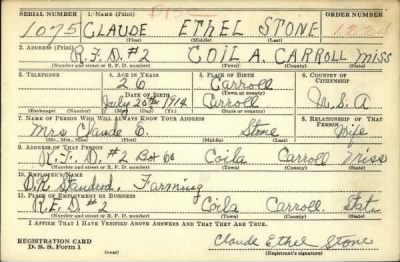 SERIAL NUMBER 1. NAME (Print) ORDER NUMBER
1075 CLAUDE ETHEL STONE
(First) (Middle) (Last)
2. ADDRESS (Print)
R.F.D. #2 COIL A. CARROLL MISS
(Number and street or R. F. D. number) (Town) (County) (State)
3. TELEPHONE 4. AGE IN YEARS 5. PLACE OF BIRTH 6. COUNTRY OF CITIZENSHIP
26 Carroll
DATE OF BIRTH (Town or county)
July 20th 1914 Carroll U.S.A
(Exchange) (Number) (Mo.) (Day) (Yr.) (State or country)
7. NAME OF PERSON WHO WILL ALWAYS KNOW YOUR ADDRESS 8. RELATIONSHIP OF THAT PERSON
Mrs Claude E. Stone Wife
(Mr., Mrs., Miss) (First) (Middle) (Last)
9. ADDRESS OF THAT PERSON
R.F.D. #2 Box 60 Coila Carroll Miss
(Number and street or R. F. D. number) (Town) (County) (State)
10. EMPLOYER'S NAME
Farming
11. PLACE OF EMPLOYMENT OR BUSINESS
R.F.D. #2 Coila Carroll State
(Number and street or R. F. D. number) (Town) (County) (State)
I AFFIRM THAT I HAVE VERIFIED ABOVE ANSWERS AND THAT THEY ARE TRUE.
REGISTRATION CARD
D. S. S. Form 1 (over) Claude Ethel Stone
(Registrant's signature)